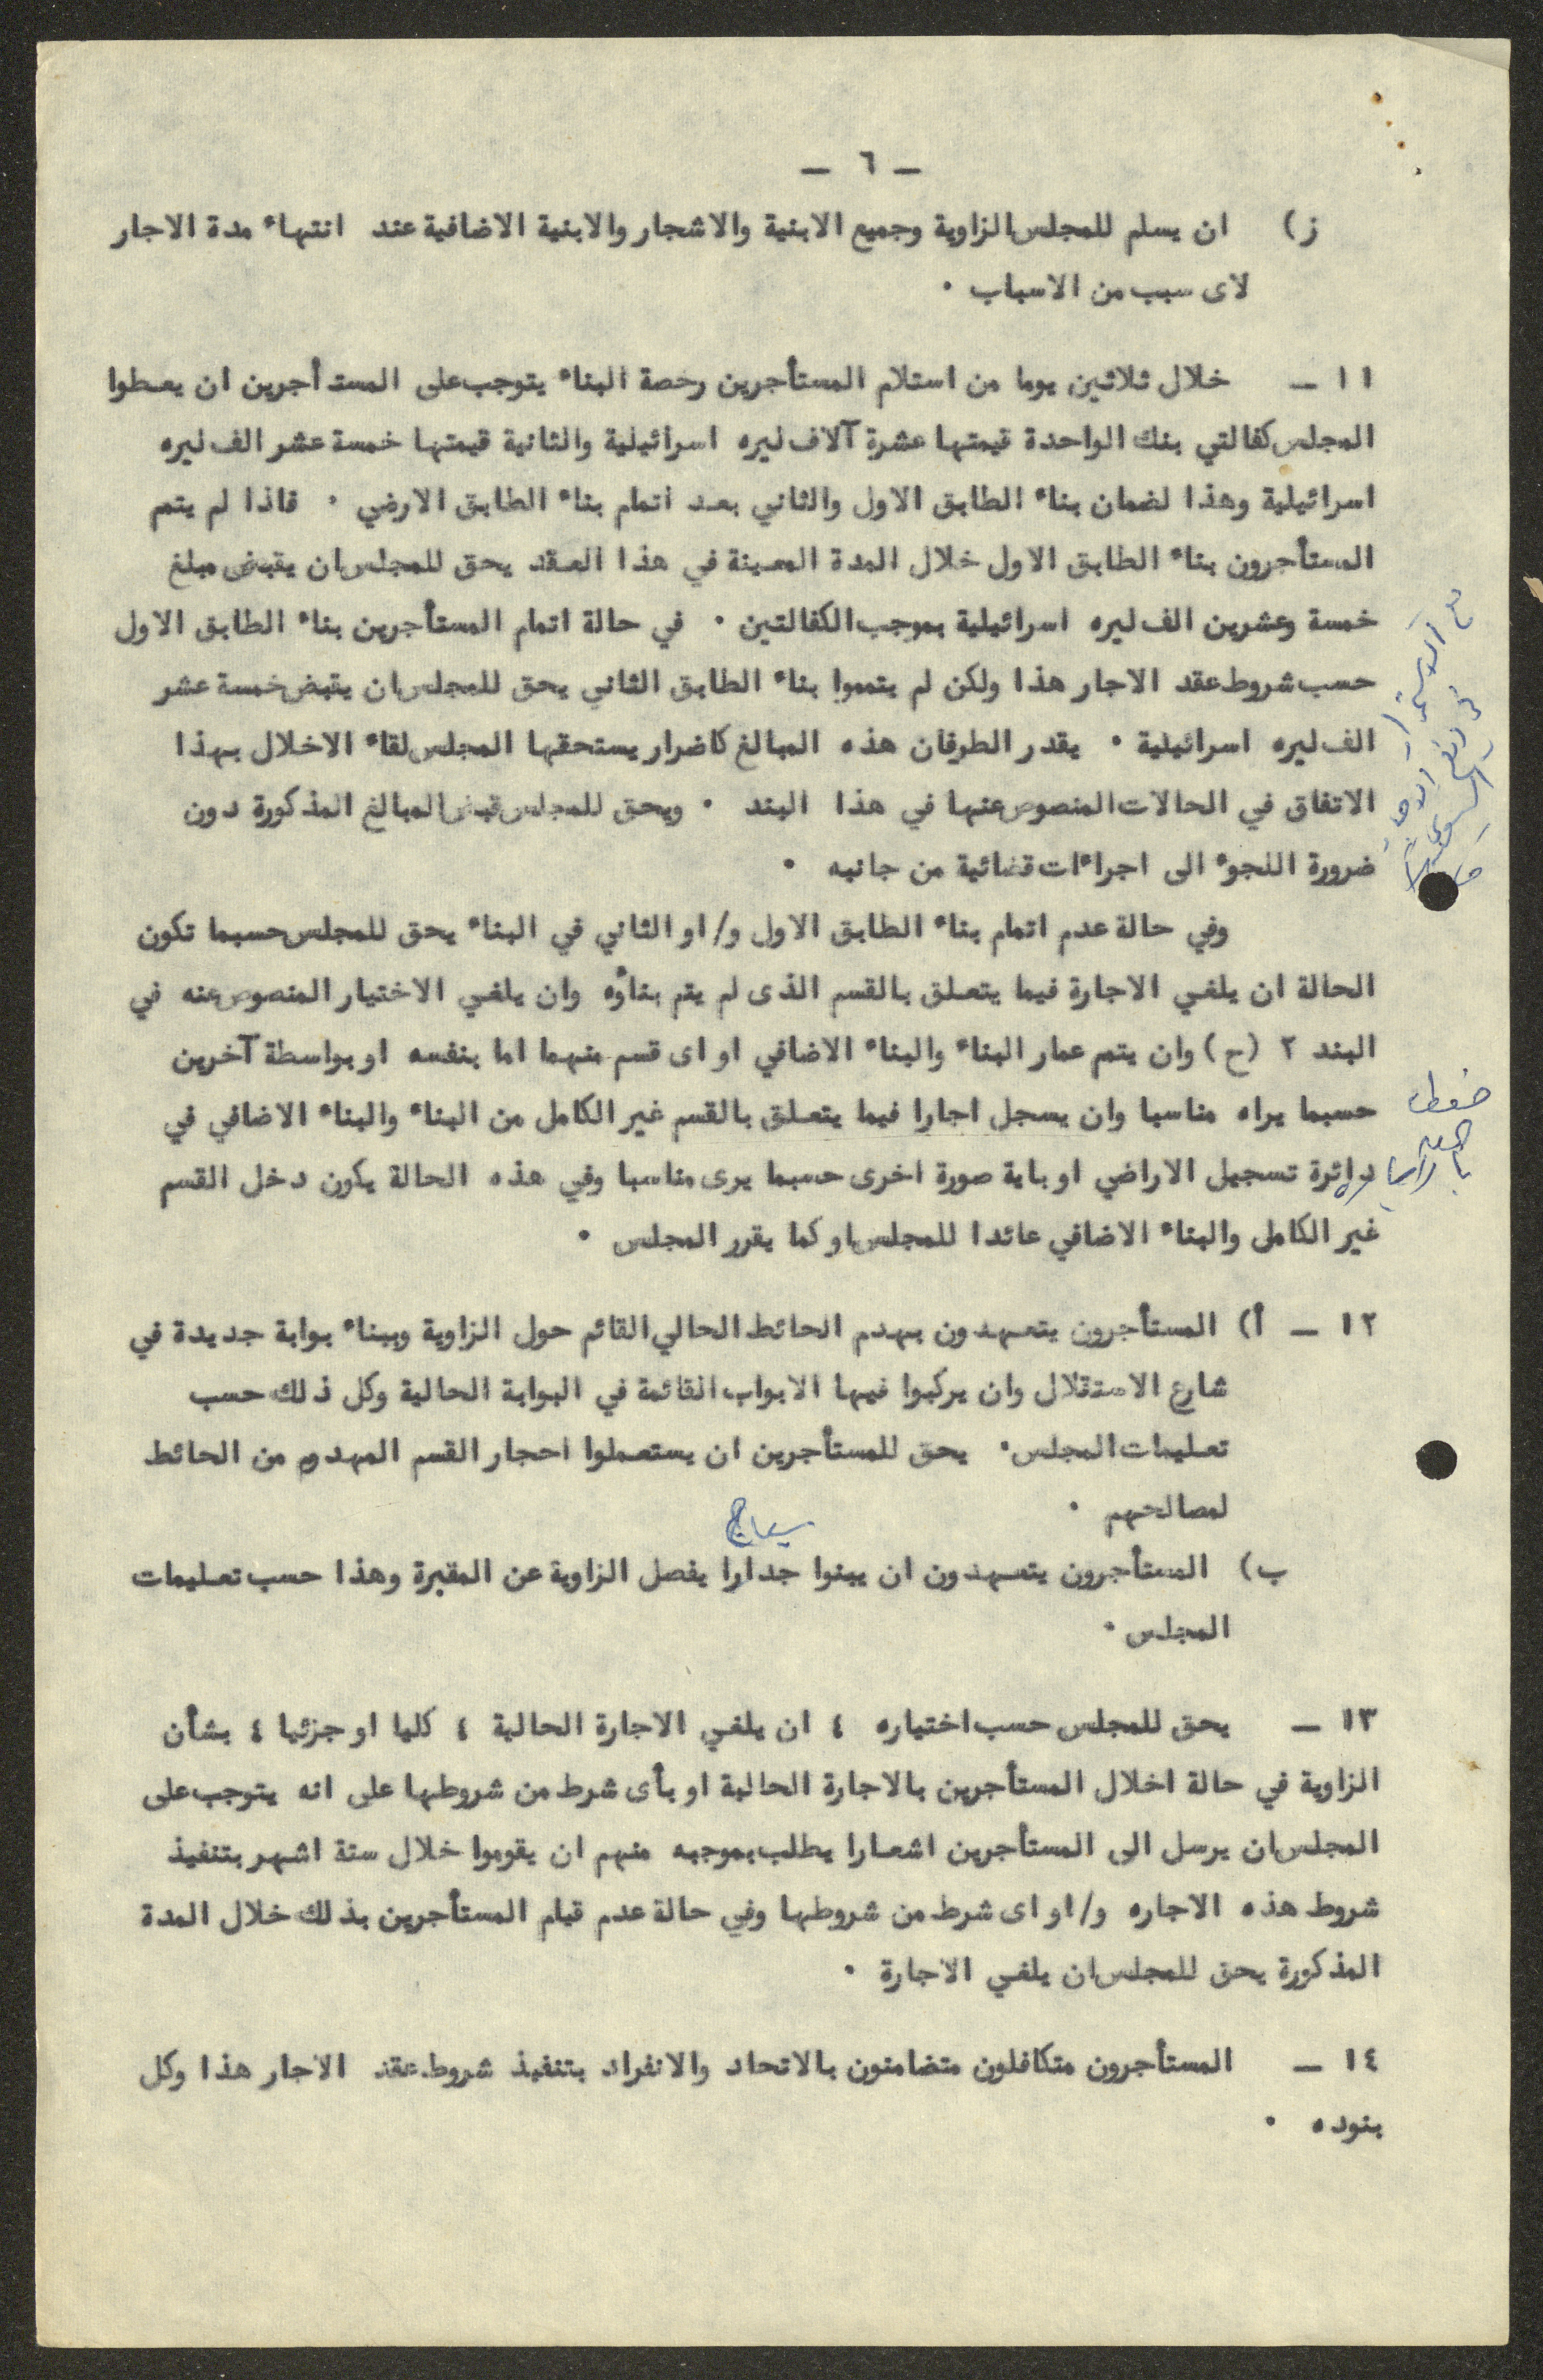 — ٦ —
ز) ان يسلم للمجلس الزاوية وجميع الابنية والاشجار والابنية الاضافية عند انتهاء مدة الاجار
لاى سبب من الاسباب .
١١ — خلال ثلاثين يوما من استلام المستأجرين رخصة البناء يتوجب على المستأجرين ان يعطوا
المجلس كفالتي بنك الواحدة قيمتها عشرة آلاف ليره اسرائيلية والثانية قيمتها خمسة عشر الف ليره
اسرائيلية وهذا لضمان بناء الطابق الاول والثاني بعد اتمام بناء الطابق الارضي . فاذا لم يتم
المستأجرون بناء الطابق الاول خلال المدة المعينة في هذا العقد يحق للمجلس ان يقبض مبلغ
خمسة وعشرين الف ليره اسرائيلية بموجب الكفالتين . في حالة اتمام المستأجرين بناء الطابق الاول
حسب شروط عقد الاجار هذا ولكن لم يتمموا بناء الطابق الثاني يحق للمجلس ان يقبض خمسة عشر
الف ليره اسرائيلية . يقدر الطرفان هذه المبالغ كاضرار يستحقها المجلس لقاء الاخلال بهذا
الاتفاق في الحالات المنصوص عنها في هذا البند . ويحق للمجلس قبض المبالغ المذكورة دون
ضرورة اللجوء الى اجراءات قضائية من جانبه .
وفي حالة عدم اتمام بناء الطابق الاول و/او الثاني في البناء يحق للمجلس حسبما تكون
الحالة ان يلغي الاجارة فيما يتعلق بالقسم الذى لم يتم بناؤه وان يلغي الاختيار المنصوص عنه في
البند ٢ (ح) وان يتم عمار البناء والبناء الاضافي او اى قسم منهما اما بنفسه او بواسطة آخرين
حسبما يراه مناسبا وان يسجل اجارا فيما يتعلق بالقسم غير الكامل من البناء والبناء الاضافي في
دائرة تسجيل الاراضي او باية صورة اخرى حسبما يرى مناسبا وفي هذه الحالة يكون دخل القسم
غير الكامل والبناء الاضافي عائدا للمجلس او كما يقرر المجلس .
١٢ — أ) المستأجرون يتعهدون بهدم الحائط الحالي القائم حول الزاوية وببناء بوابة جديدة في
شارع الاستقلال وان يركبوا فيها الابواب القائمة في البوابة الحالية وكل ذلك حسب
تعليمات المجلس. يحق للمستأجرين ان يستعملوا احجار القسم المهدوم من الحائط
لمصالحهم .
سياج
ب) المستأجرون يتعهدون ان يبنوا جدارا يفصل الزاوية عن المقبرة وهذا حسب تعليمات
المجلس .
١٣ — يحق للمجلس حسب اختياره ٤ ان يلغي الاجارة الحالية ٤ كليا او جزئيا ٤ بشأن
الزاوية في حالة اخلال المستأجرين بالاجارة الحالية او بأى شرط من شروطها على انه يتوجب على
المجلس ان يرسل الى المستأجرين اشعارا يطلب بموجبه منهم ان يقوموا خلال ستة اشهر بتنفيذ
شروط هذه الاجاره و/او اى شرط من شروطها وفي حالة عدم قيام المستأجرين بذلك خلال المدة
المذكورة يحق للمجلس ان يلغي الاجارة .
١٤ — المستأجرون متكافلون متضامنون بالاتحاد والانفراد بتنفيذ شروط عقد الاجار هذا وكل
بنوده .